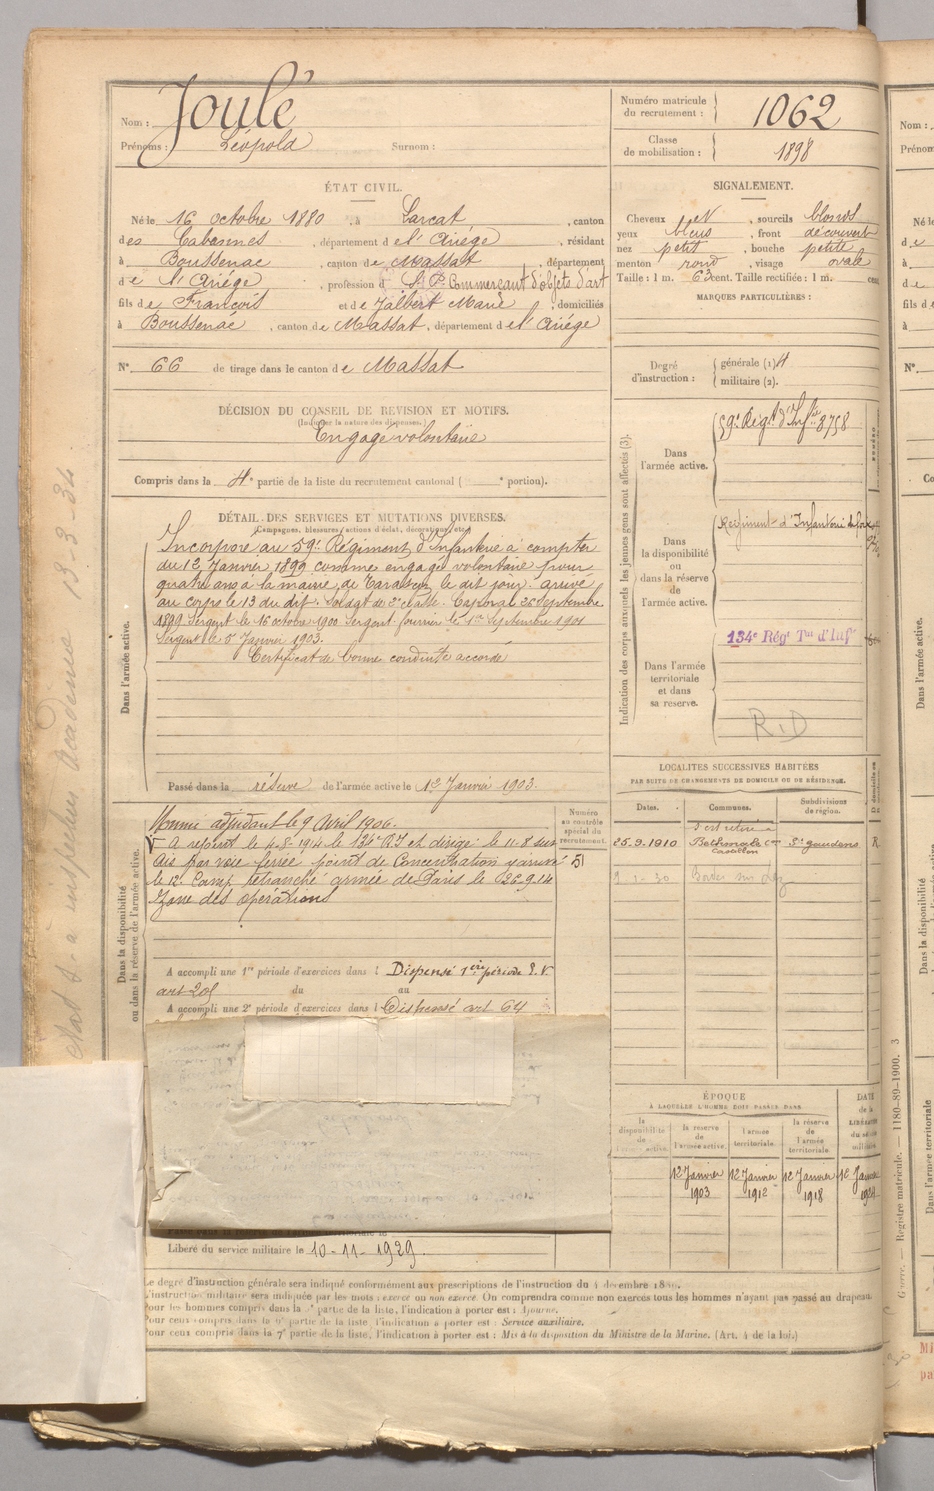 Nom : Joulé
Prénoms : Léopold Surnom :
Numéro matricule du recrutement : 1062
Classe de mobilisation : 1898
ÉTAT CIVIL.
Né le 16 octobre 1880, à Larcat, canton
des Cabannes, département de l'Ariége, résidant
à Boussenac, canton de Massat, département
de l'Ariége, profession d Commerçant d'objets d'art
fils de François et de Jalbert Marie, domiciliés
à Boussenac, canton de Massat, département de l'Ariége
N° 66 de tirage dans le canton de Massat
SIGNALEMENT.
Cheveux , sourcils blonds
yeux bleus, front découvert
nez petit, bouche petite
menton rond, visage ovale
Taille : 1 m. 63 cent. Taille rectifiée : 1 m. cent
MARQUES PARTICULIÈRES :
Degré d'instruction : générale (1)
militaire (2).
DÉCISION DU CONSEIL DE REVISION ET MOTIFS.
(Indiquer la nature des dispenses.)
Engagé volontaire
Compris dans la 4e partie de la liste du recrutement cantonal ( e portion).
DÉTAIL DES SERVICES ET MUTATIONS DIVERSES.
(Campagnes, blessures, actions d'éclat, décorations, etc.)
Dans l'armée active.
Incorporé au 59e Régiment d'Infanterie à compter
du 12 Janvier 1899 comme engagé volontaire pour
quatre ans à la mairie de Tarascon le dit jour. arrivé
au corps le 13 du dit. Soldat de 2e classe. Caporal 26 Septembre
1899 Sergent le 16 octobre 1900 Sergent fourrier le 1er Septembre 1901
Sergent le 5 Janvier 1903.
Certificat de bonne conduite accordé
Passé dans la réserve de l'armée active le 12 Janvier 1903.
Indication des corps auxquels les jeunes gens sont affectés (3).
Dans l'armée active.
59e Régt d'Infie 8758
Dans la disponibilité ou dans la réserve de l'armée active.
Régiment d'Infanterie de Foix
Dans l'armée territoriale et dans sa réserve.
134e Régt Tal d'Inf
R.D
Dans la disponibilité ou dans la réserve de l'armée active.
Nommé adjudant le 9 Avril 1906.
A rejoint le 4-8-1914 le 134e RI et dirigé le 11-8 sur
Aix par voie ferrée point de Concentration
le 12e Camp retranché armée de Paris le 26-9-14
Zone des opérations
Numéro au contrôle spécial du recrutement.
A accompli une 1re période d'exercices dans l Dispensé 1ère période
art 208 du au
A accompli une 2e période d'exercices dans l Dispensé art 64
Libéré du service militaire le 10-11-1929.
LOCALITÉS SUCCESSIVES HABITÉES
PAR SUITE DE CHANGEMENTS DE DOMICILE OU DE RÉSIDENCE.
Dates. Communes. Subdivisions de région.
25.9.1910 S'est retiré à Bethmale con Castillon St gaudens R
ÉPOQUE
À LAQUELLE L'HOMME DOIT PASSER DANS
la disponibilité de l'armée active.
la réserve de l'armée active.
l'armée territoriale.
la réserve de l'armée territoriale.
12 Janvier 1903
12 Janvier 1912
12 Janvier 1918
Le degré d'instruction générale sera indiqué conformément aux prescriptions de l'instruction du 4 décembre
L'instruction militaire sera indiquée par les mots : exercé ou non exercé. On comprendra comme non exercés tous les hommes n'ayant pas passé au drapeau.
Pour les hommes compris dans la partie de la liste, l'indication à porter est : Ajourné.
Pour ceux compris dans la partie de la liste, l'indication à porter est : Service auxiliaire.
Pour ceux compris dans la 7e partie de la liste, l'indication à porter est : Mis à la disposition du Ministre de la Marine. (Art. 4 de la loi.)
état s. à inspecteur Académie 13-3-34
Guerre. — Registre matricule. — 1180-89-1900. 3